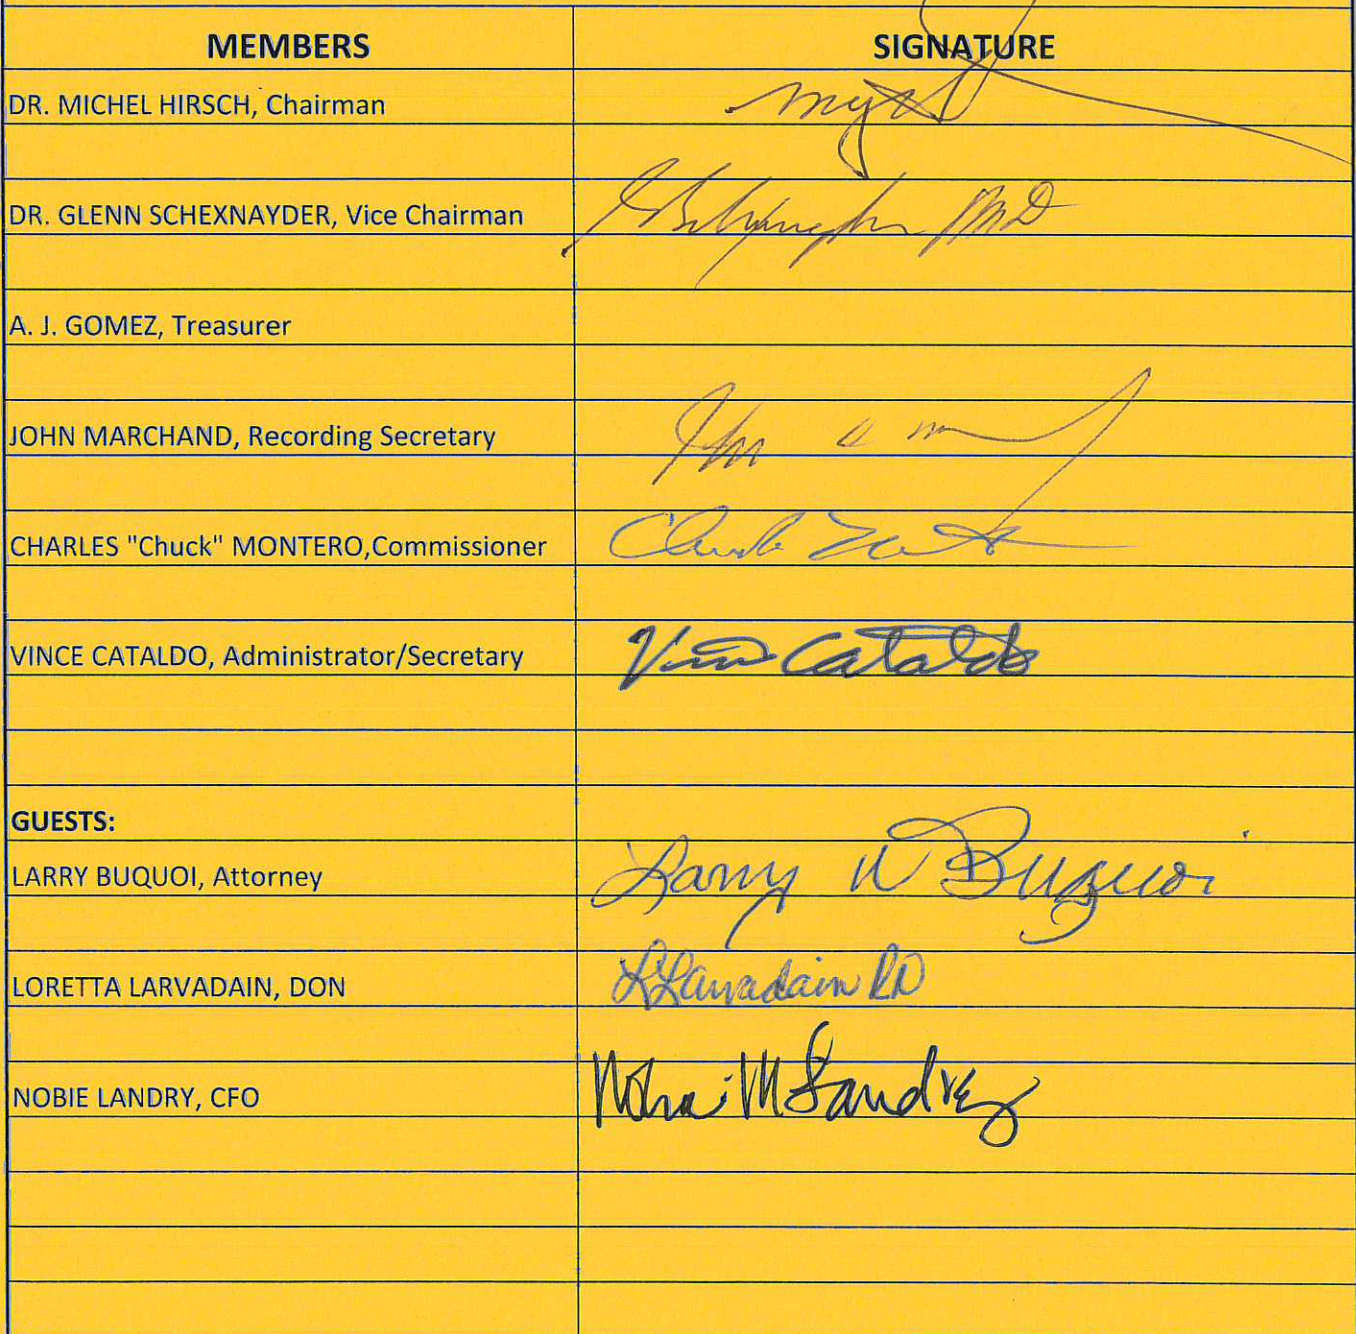 MEMBERS SIGNATURE
DR. MICHEL HIRSCH, Chairman
DR. GLENN SCHEXNAYDER, Vice Chairman MD
A. J. GOMEZ, Treasurer
JOHN MARCHAND, Recording Secretary
CHARLES "Chuck" MONTERO,Commissioner
VINCE CATALDO, Administrator/Secretary Vince Cataldo
GUESTS:
LARRY BUQUOI, Attorney Larry W Buquoi
LORETTA LARVADAIN, DON LLarvadain RN
NOBIE LANDRY, CFO M Landry